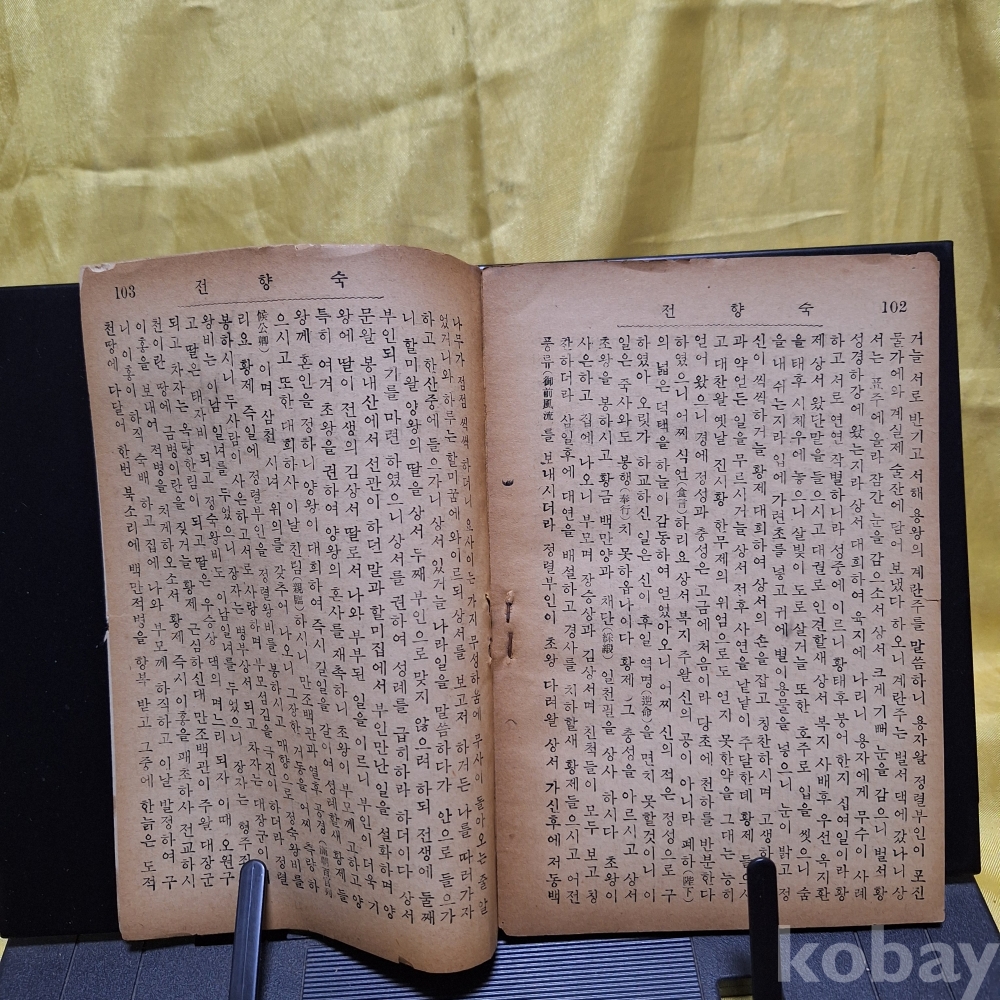 숙향전 102
거늘 서로 반기고 서해 용왕의 계란주를 말씀하니 용자왈 정렬부인이 포진
물가에와 계실제 술산에 담어 보냈다 하오니 계란주는 벌서 댁에 갔나니 상
서는 표주에 올라 잠간 눈을 감으소서 상서 크게 기뻐 눈을 감으니 벌서 황
성경하장에 왔는지라 상서 대희하여 육지에 나리니 용자에게 무수이 사례
하고 서르 연연 작별하니라 성중에 이르니 황태후 붕어 한지 십여일이라 황
제 상서 왔단말을 들으시고 대궐로 인견할새 상서 복지 사배후 우선 옥지환
을 태후 시체우에 놓으니 살빛이 도로살거늘 또한 호주로 입을 씻으니 숨
을 내쉬는지라 입에 가련초를 넣고 귀에 별이용물을 넣으니 눈이 밝고 정
신이 씩씩하거늘 황제 대희하여 상서의 손을 잡고 칭찬하시며 고생하
과 약얻든 일을 무르시거늘 상서 전후 사연을 낱낱이 주달한데 황제 들으시
고 대찬왈 옛날 진시황 한무제의 위엄으로도 얻지 못한약을 그대는 능히
얻어 왔으니 경에 정성과 충성은 고금에 처음이라 당초에 천하를 반분한다
하였으니 어찌 식언(食言)하리요 상서 복지 주왈 신의 공이 아니라 폐하(陛下)
의 넓은 덕택을 하늘이 감동하여 얻었아오니 신의 적은 정성으로 구
하였아 오릿가 하교하신 일은 신이 후일 역명(逆命)을 면치 못할것이니 이
일은 죽사와도 봉행(奉行)치 못하옵나이다 황제 그 충성을 아르시고 상서
초왕을 봉하시고 황금 백만양과 채단(綵緞) 일천필을 상사 하시다 초왕이
사은하고 집에 나오니 부모며 장승상과 김상서며 친척들이 모두 보고 칭
찬하더라 삼일후에 대연을 배설하고 경사를 치하할새 황제들으시고 어전
풍류(御前風流)를 보내시더라 정렬부인이 초왕 다려왈 상서 가신후에 저동백
숙향전 103
나무가 점점 씩씩 하더니 요사이는 가지 무성하옴에 무사이 돌아오는줄 알
었거니와 하루는 할미꿈에 와이르되 상서를 보고저 하거든 나를 따러가자
하고 한산중에 들으가니 상서 있거늘 나라일을 말씀하다가 안으로 들으가
니 할미왈 양왕의 딸을 상서 두째 부인으로 맞지 않으려 하되 전생에 둘째
부인되기를 마련하였으니 상서를 권하여 성례를 급히하라 하더이다 상서
문왈 봉내산에서 선관이 하던말과 할미집에서 부인만난 일을 설화하며 양
왕에 딸이 전생의 김상서 딸로서 나와 부부된 일을 이르니 부인이 더욱 기
특히 여겨 초왕을 권하여 양왕의 혼사를 재촉하니 초왕이 부모께 고하고 양
왕께 혼인을 정하니 양왕이 대희하여 즉시 길일을 갈이여 성례할새 황제 들
으시고 또한 대희하사 이날 친림(親臨)하시니 만조백관과 열후 공경
候公卿)이며 삼천 시녀 위의를 갖추어 나오니 그 장한 거동을 어찌 측량하
리요 황제 즉일에 정렬부인을 정렬왕비를 봉하시고 매향으로 정숙왕비를
봉하시니 두사람이 사은하고서로 사랑하며 부모섬김을 극진이하더라 정렬
왕비는 이남 일녀를 두었으니 장자는 병부상서 되고 차자는 대장군이
고 딸은 태자비 되고 정숙왕비도 이남일녀를 두었으니 장자는 형주
되고 차자는 옥당한림이 되고 딸은 우승상 댁의 며느리 되자 이때 오원구
천이란 땅에 금병이란을 짖거늘 황제 근심하신대 만조백관이 주왈 대장군
이홍을 보내여 적병을 치게하오소서 황제 즉시 이홍을 패초하사 전교하시
니 이홍이 하직 숙배 하고 집에 나와 부모께 하직하고 이날 발정하여 구
천땅에 다달어 한번 북소리에 백만적병을 항복 받고 그중에 한늙은 도적
kobay